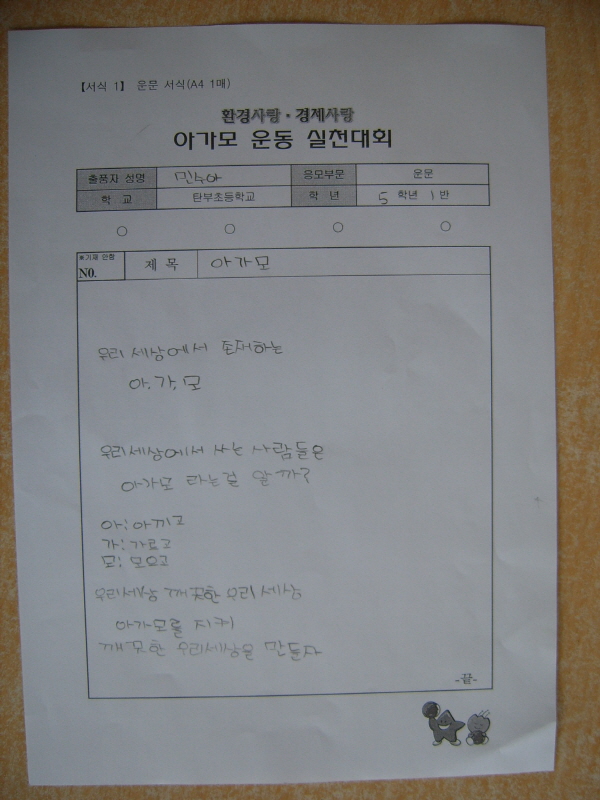 【서식 1】 운문 서식(A4 1매)
환경사랑·경제사랑
아가모 운동 실천대회
출품자 성명 민수아 응모부문 운문
학 교 탄부초등학교 학 년 5 학년 1 반
※기재 안함
NO. 제 목 아가모
우리 세상에서 존재하는
아.가.모
우리세상에서 사는 사람들은
아가모 라는걸 알까?
아:아끼고
가:가르고
모:모으고
우리세상 깨끗한 우리 세상
아가모를 지켜
깨끗한 우리세상을 만들자
-끝-